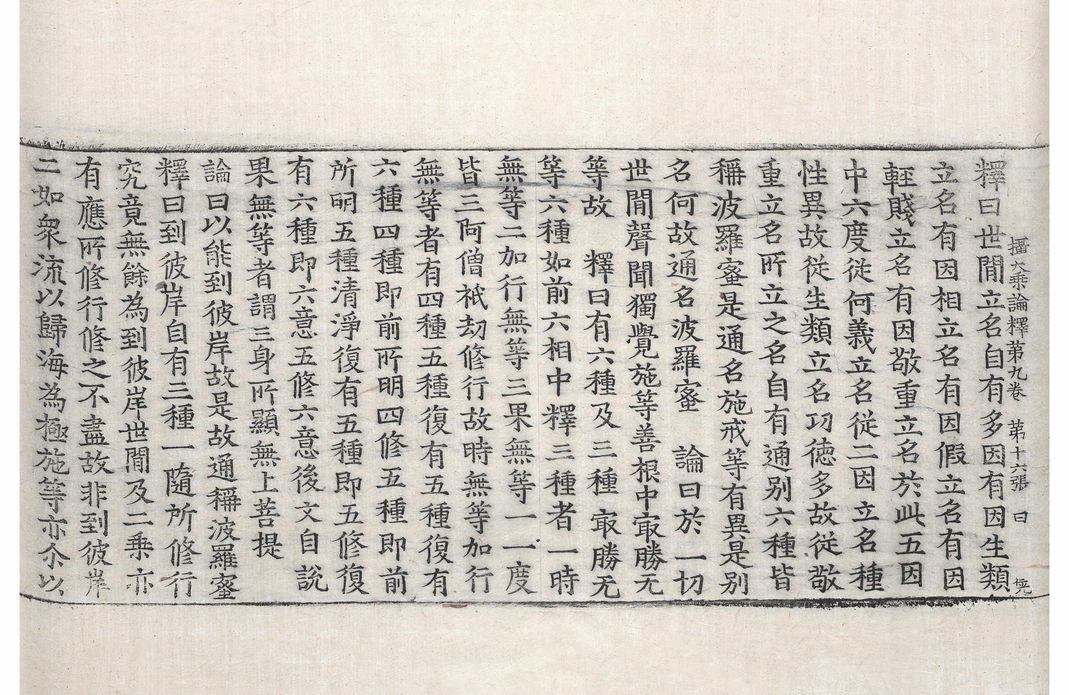 釋曰世間立名自有多因有因生類
攝大乗論釋苐九卷　苐十六張　曰
立名有因相立名有因假立名有因
輊賤立名有因敬重立名於此五因
中六度従何義立名従二因立名種
性異故従生類立名㓛徳多故従敬
重立名所立之名自有通别六種皆
稱波羅蜜是通名施戒等有異是别
名何故通名波羅蜜　論曰於一切
世間聲聞獨覺施等善根中㝡勝无
等故　釋曰有六種及三種㝡勝无
等六種如前六相中釋三種者一時
無等二加行無等三果無等一一度
皆三阿僧祇劫修行故時無等加行
無等者有四種五種復有五種復有
六種四種即前所明四修五種即前
所明五種清淨復有五種即五修復
有六種即六意五修六意後文自說
果無等者謂三身所顯無上菩提
論曰以能到彼岸故是故通稱波羅蜜
釋曰到彼岸自有三種一隨所修行
究竟無餘為到彼岸世間及二乗亦
有應所修行修之不盡故非到彼岸
二如衆流以歸海為極施等亦尒以